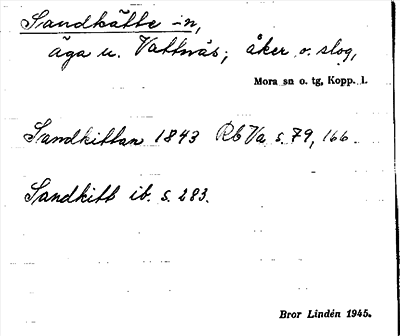 Sandkätte -n,
äga u. Vattnäs; åker o. slog,
Mora sn o. tg, Kopp. l.
Sandkittan 1843 Rb Va s. 79, 166.
Sandkitt ib. s. 283.
Bror Lindén 1945.